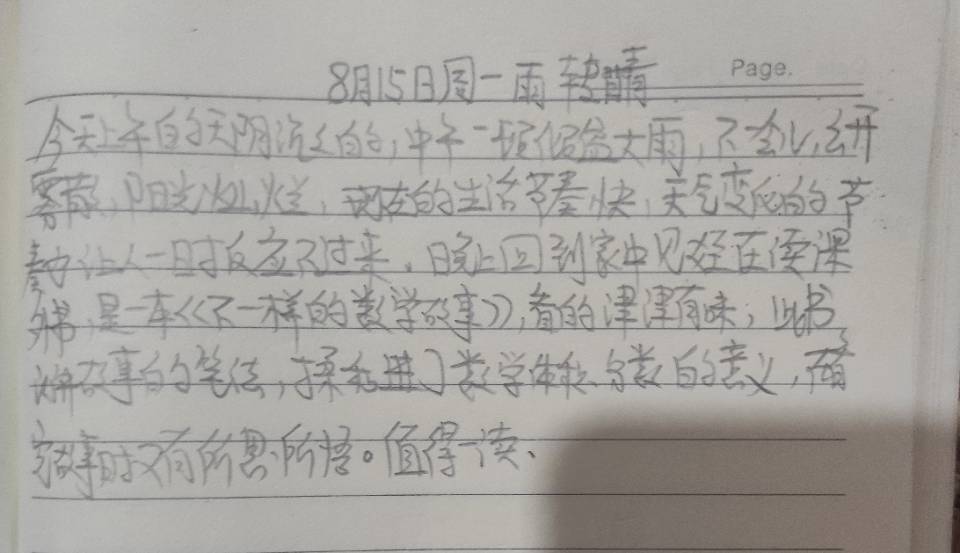 8月15日周一雨转晴 Page.
今天上午的天阴沉沉的,中午一顿倾盆大雨,不会儿,云开
雾散,阳光灿烂,现在的生活节奏快,天气变化的节
奏也让人一时反应不过来。晚上回到家中见好在读课
外书,是一本《不一样的数学故事》,看的津津有味,此书
讲故事的笔法,揉和进了数学体积分数的意义,在看
完故事时又有所思所悟。值得一读、